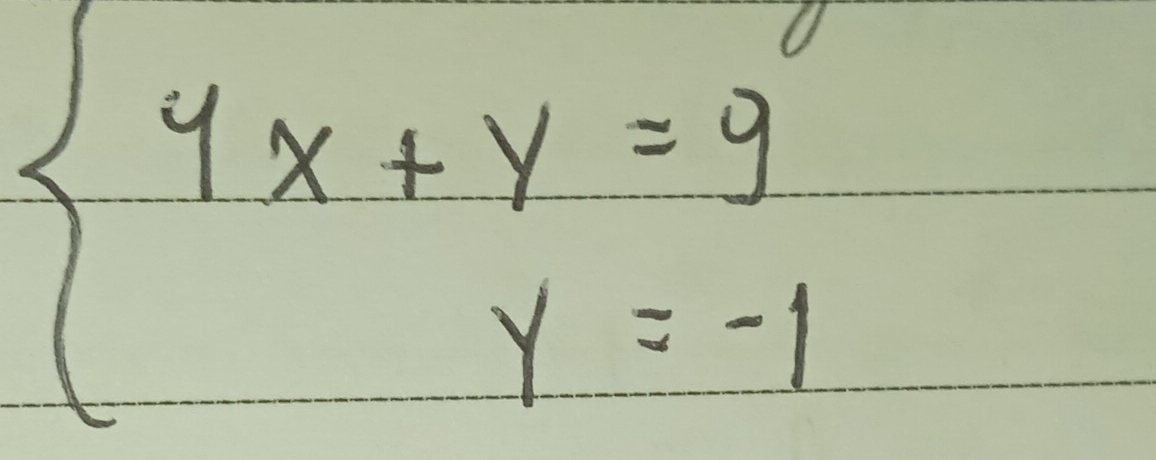 4x + y = 9
y = -1